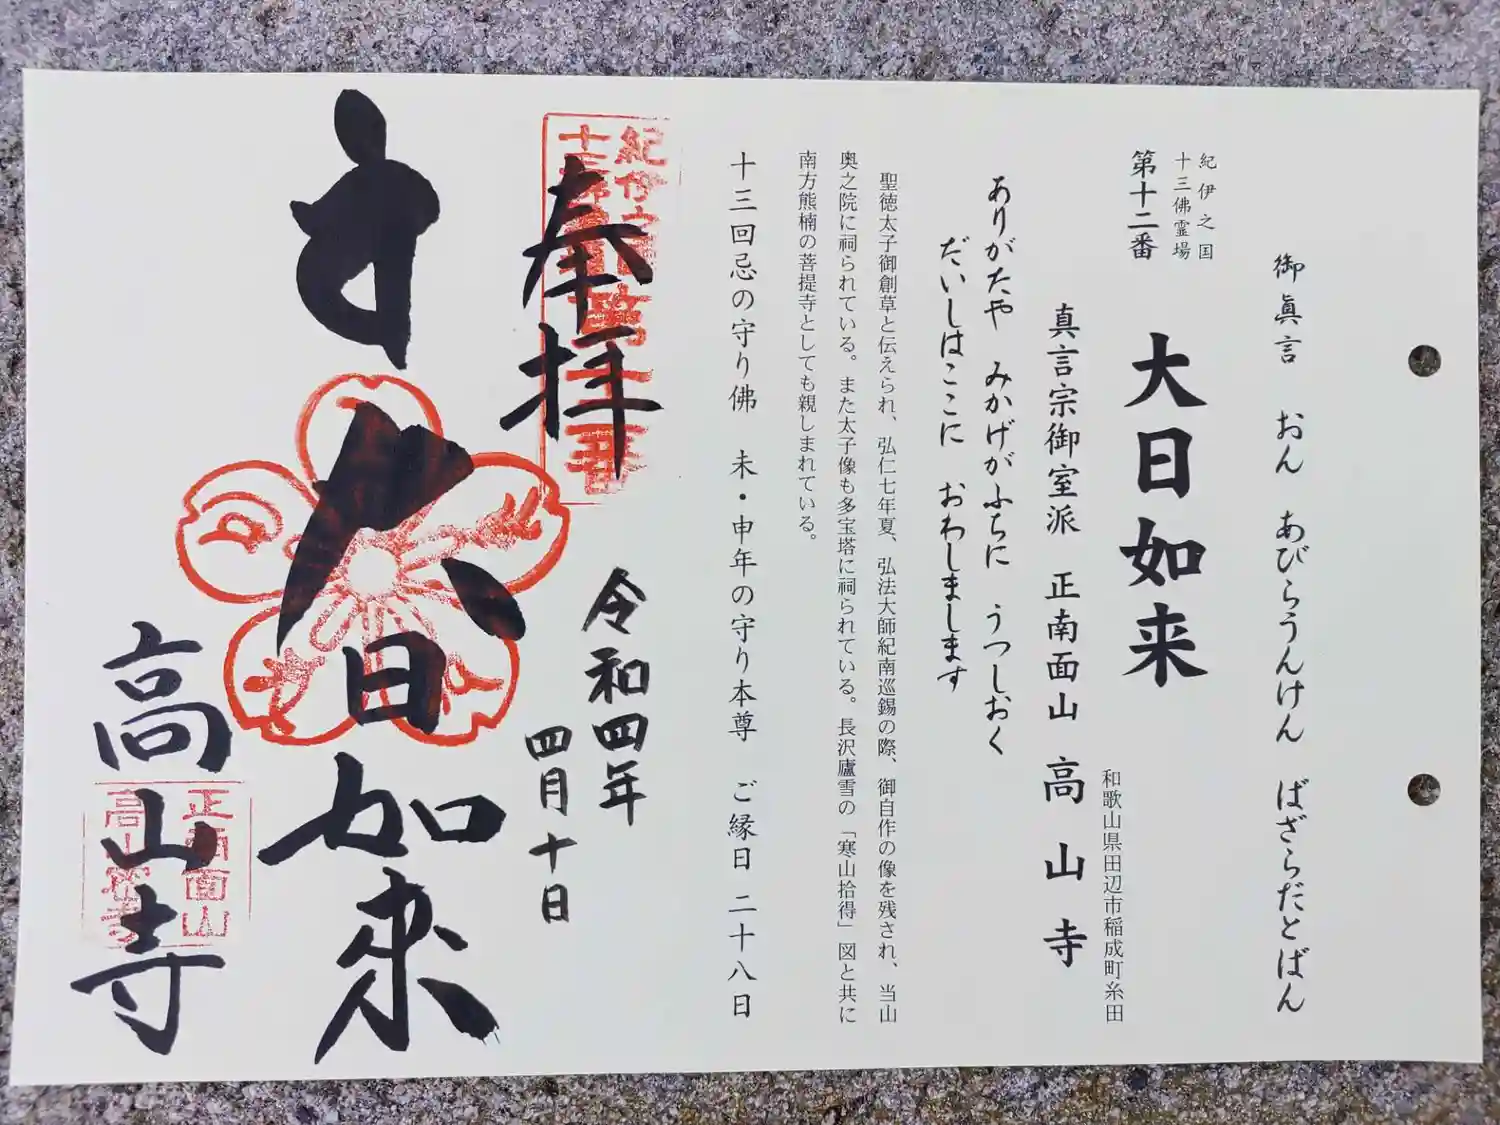 御眞言 おん あびらうんけん ばざらだとばん
紀伊之国
十三佛霊場
第十二番 大日如来
和歌山県田辺市稲成町糸田
真言宗御室派 正南面山 高山寺
ありがたや みかげがふちに うつしおく
だいしはここに おわしまします
聖徳太子御創草と伝えられ、弘仁七年夏、弘法大師紀南巡錫の際、御自作の像を残され、当山
奥之院に祠られている。また太子像も多宝塔に祠られている。長沢廬雪の「寒山拾得」図と共に
南方熊楠の菩提寺としても親しまれている。
十三回忌の守り佛 未・申年の守り本尊 ご縁日 二十八日
奉拝
令和四年
四月十日
大日如来
高山寺
正南面山